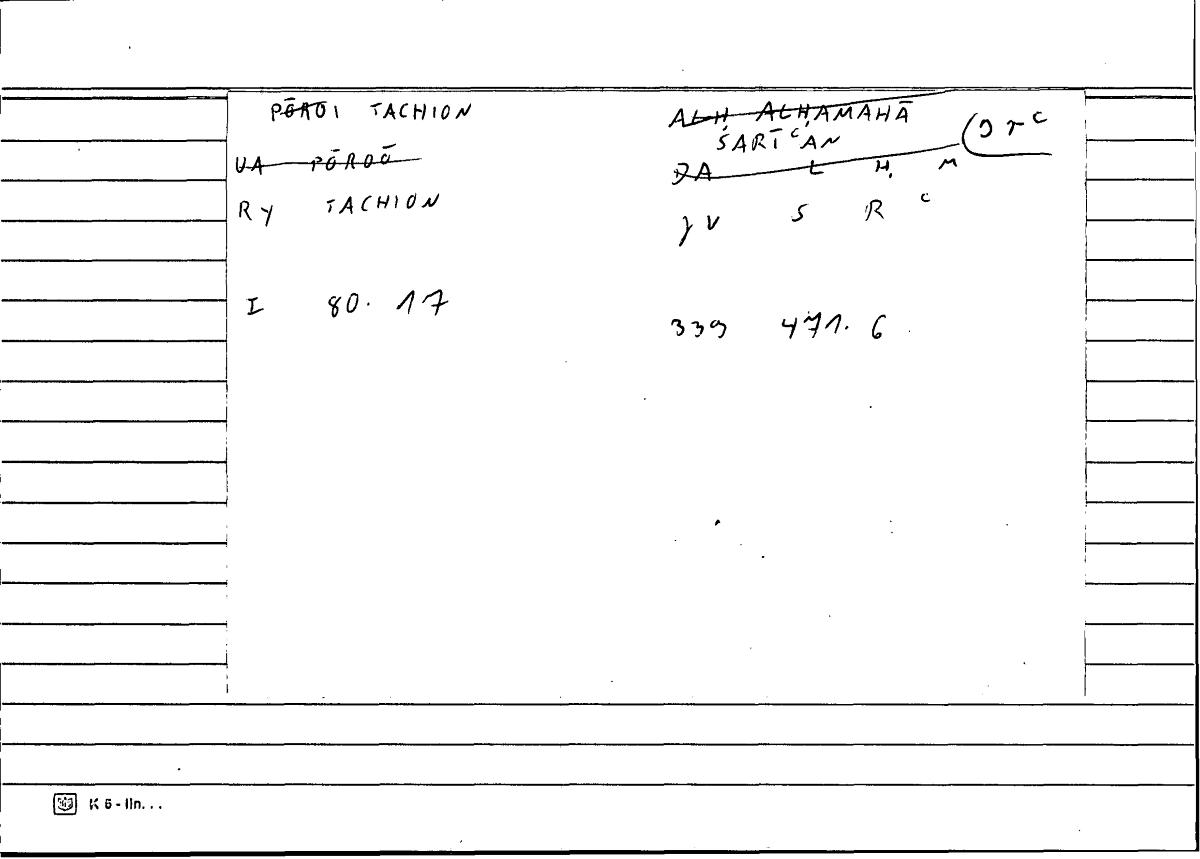 PŌRŌI TACHION
UA PŌROŌ
RY TACHION
I 80. 17
ALḤ ALḤAMAHĀ
ŠARĪʿAN
L Ḥ M
S R ʿ
339 471. 6
K 6 - lln. . .